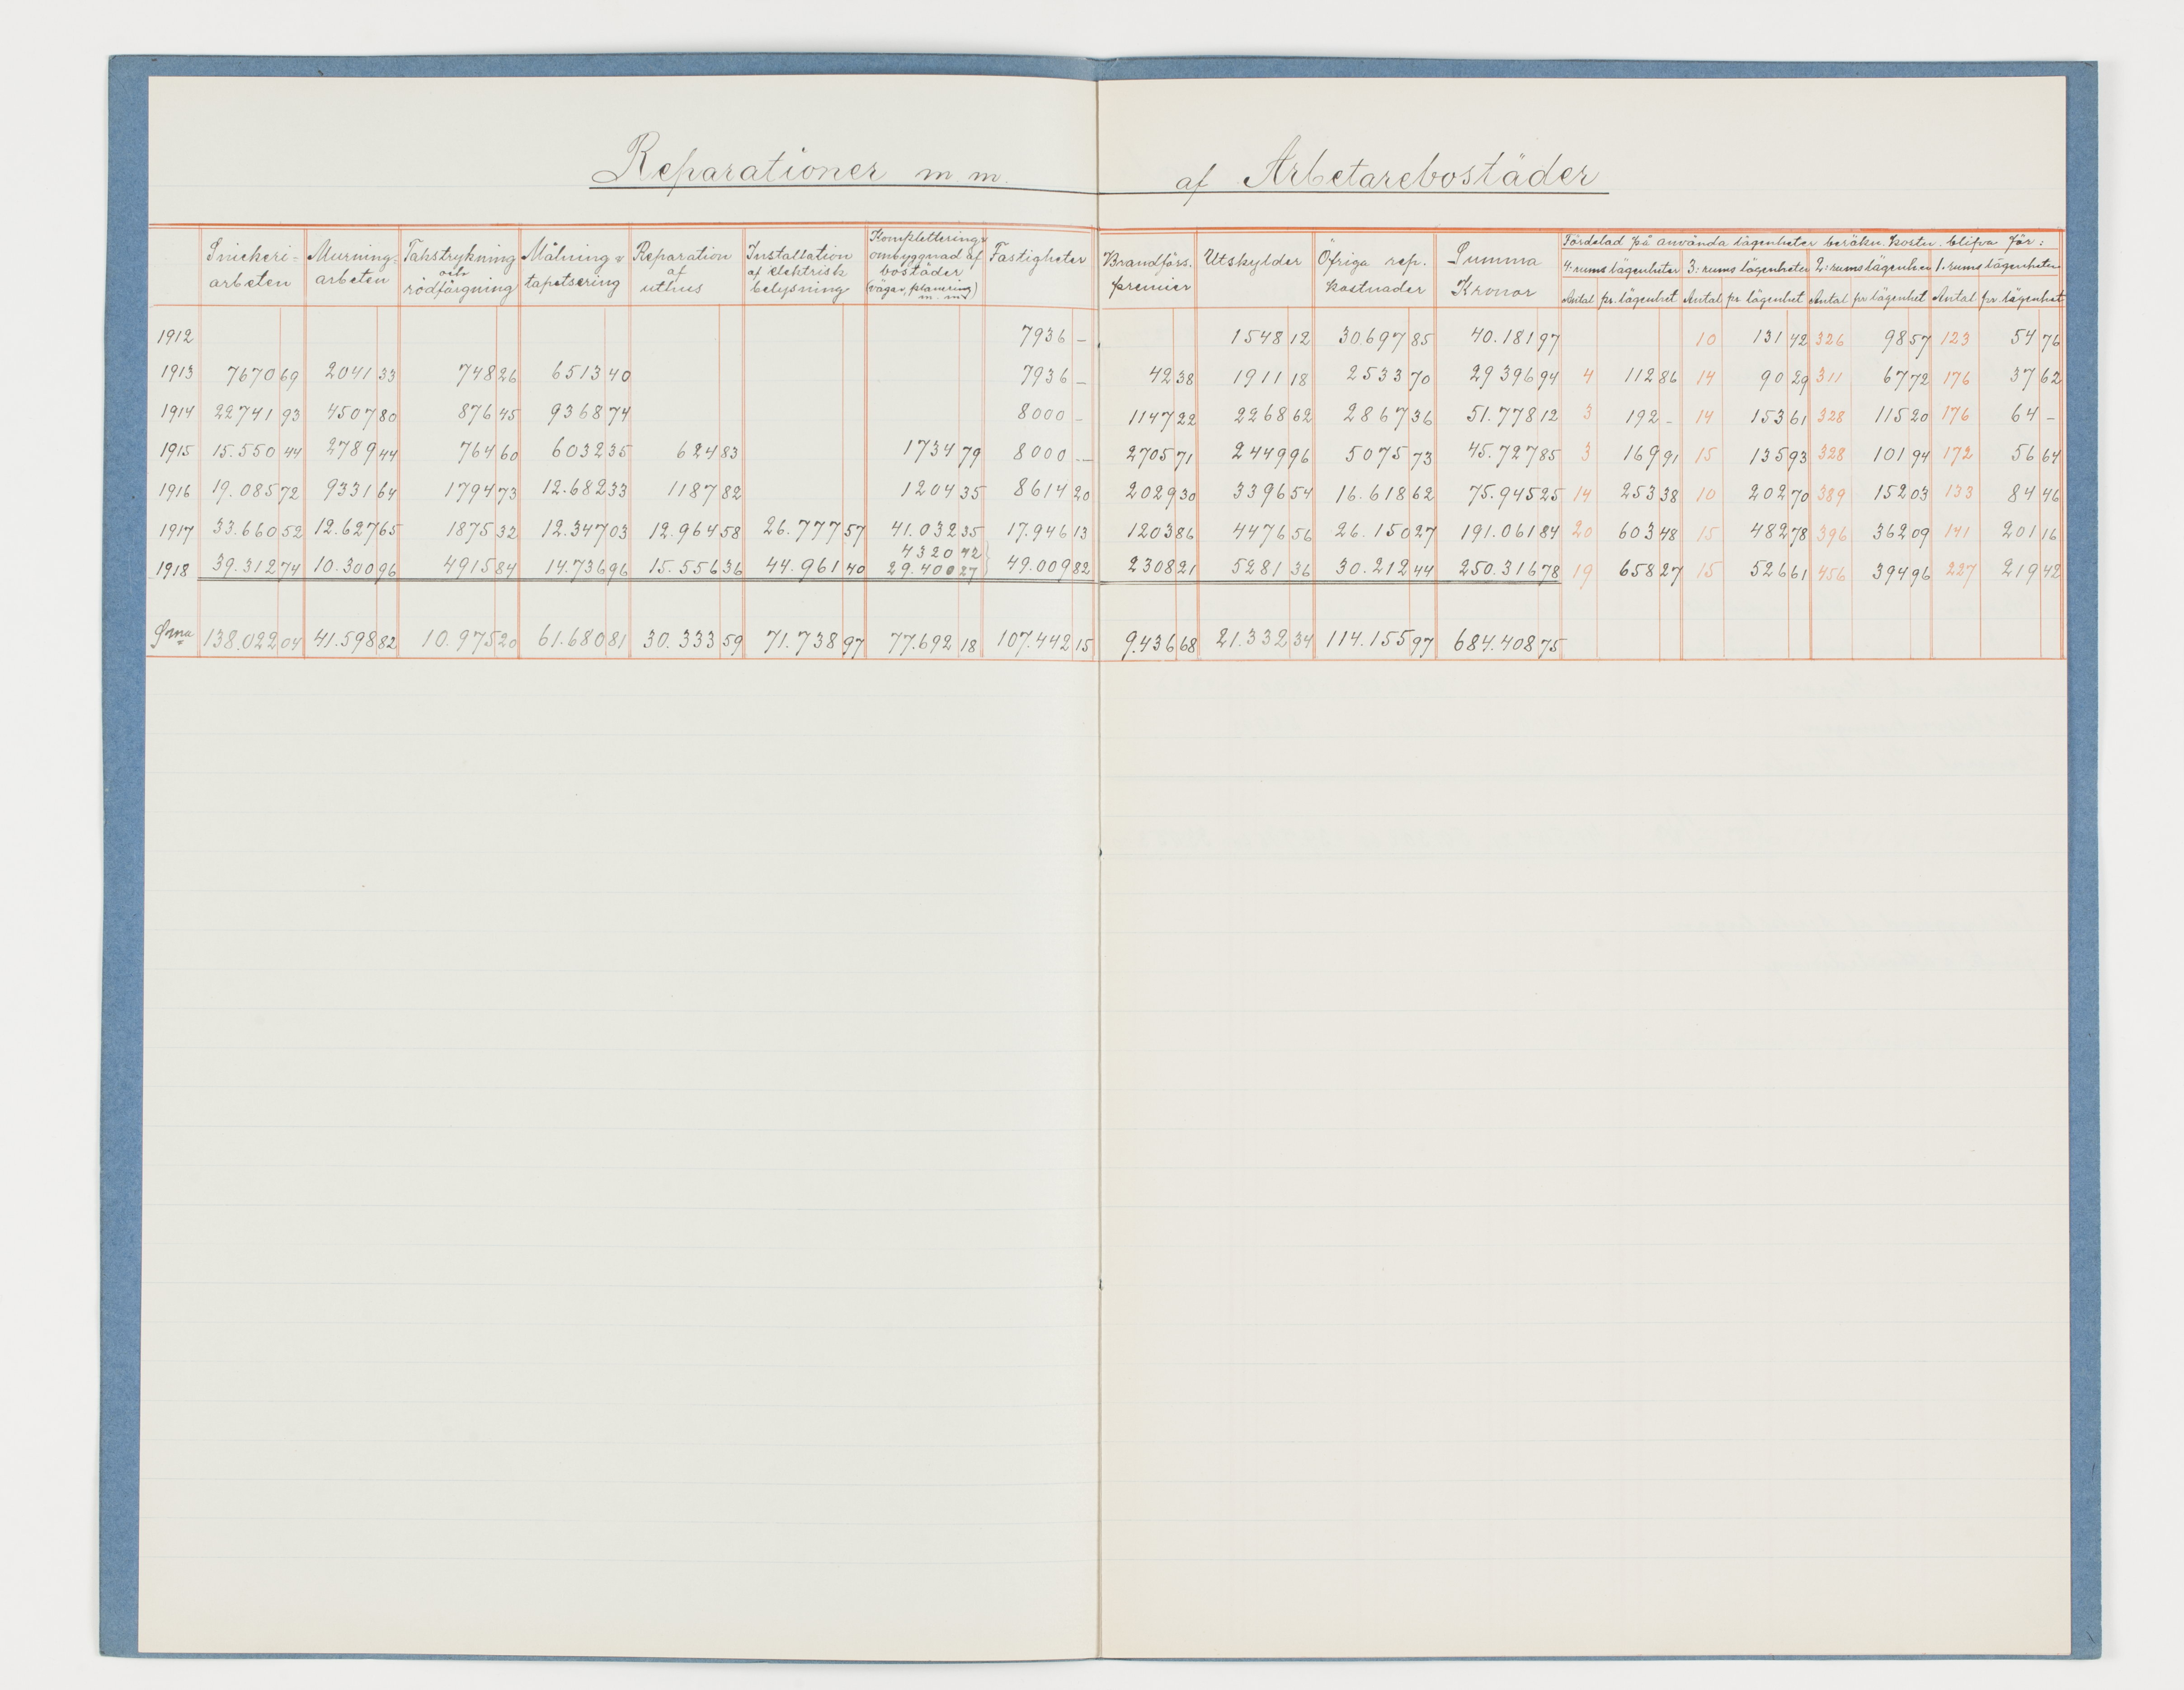 Reparationer m. m. af Arbetarebostäder
Snickeri-arbeten Murnings-arbeten Takstrykning och rödfärgning Målning o tapetsering Reparation af uthus Installation af elektrisk belysning Komplettering o ombyggnad af bostäder (vägar, planering m. m.) Fastigheter Brandförs. premier Utskylder Öfriga rep. kostnader Summa Kronor Fördelad på använda lägenheter beräkn. kostn. blifva för:
4. rums lägenheter 3: rums lägenheter 2: rums lägenheter 1. rums lägenheter
Antal pr. lägenhet Antal pr lägenhet Antal pr lägenhet Antal pr lägenhet
1912 7936 – 1548 12 30.697 85 40.181 97 10 131 42 326 98 57 123 54 76
1913 7670 69 2041 33 748 26 6513 40 7936 – 42 38 1911 18 2533 70 29 396 94 4 112 86 14 90 29 311 67 72 176 37 62
1914 22741 93 4507 80 876 45 9368 74 8000 – 1147 22 2268 62 2867 36 51.778 12 3 192 – 14 153 61 328 115 20 176 64 –
1915 15.550 44 2789 44 764 60 6032 35 624 83 1734 79 8000 – 2705 71 2449 96 5075 73 45.727 85 3 169 91 15 135 93 328 101 94 172 56 64
1916 19.085 72 9331 64 1794 73 12.682 33 1187 82 1204 35 8614 20 2029 30 3396 54 16.618 62 75.945 25 14 253 38 10 202 70 389 152 03 133 84 46
1917 33.660 52 12.627 65 1875 32 12.347 03 12.964 58 26.777 57 41.032 35 17.946 13 1203 86 4476 56 26.150 27 191.061 84 20 603 48 15 482 78 396 362 09 141 201 16
4320 42
1918 39.312 74 10.300 96 4915 84 14.736 96 15.556 36 44.961 40 29.400 27 49.009 82 2308 21 5281 36 30.212 44 250.316 78 19 658 27 15 526 61 456 394 96 227 219 42
Sma 138.022 04 41.598 82 10.975 20 61.680 81 30.333 59 71.738 97 77.692 18 107.442 15 9.436 68 21.332 34 114.155 97 684.408 75